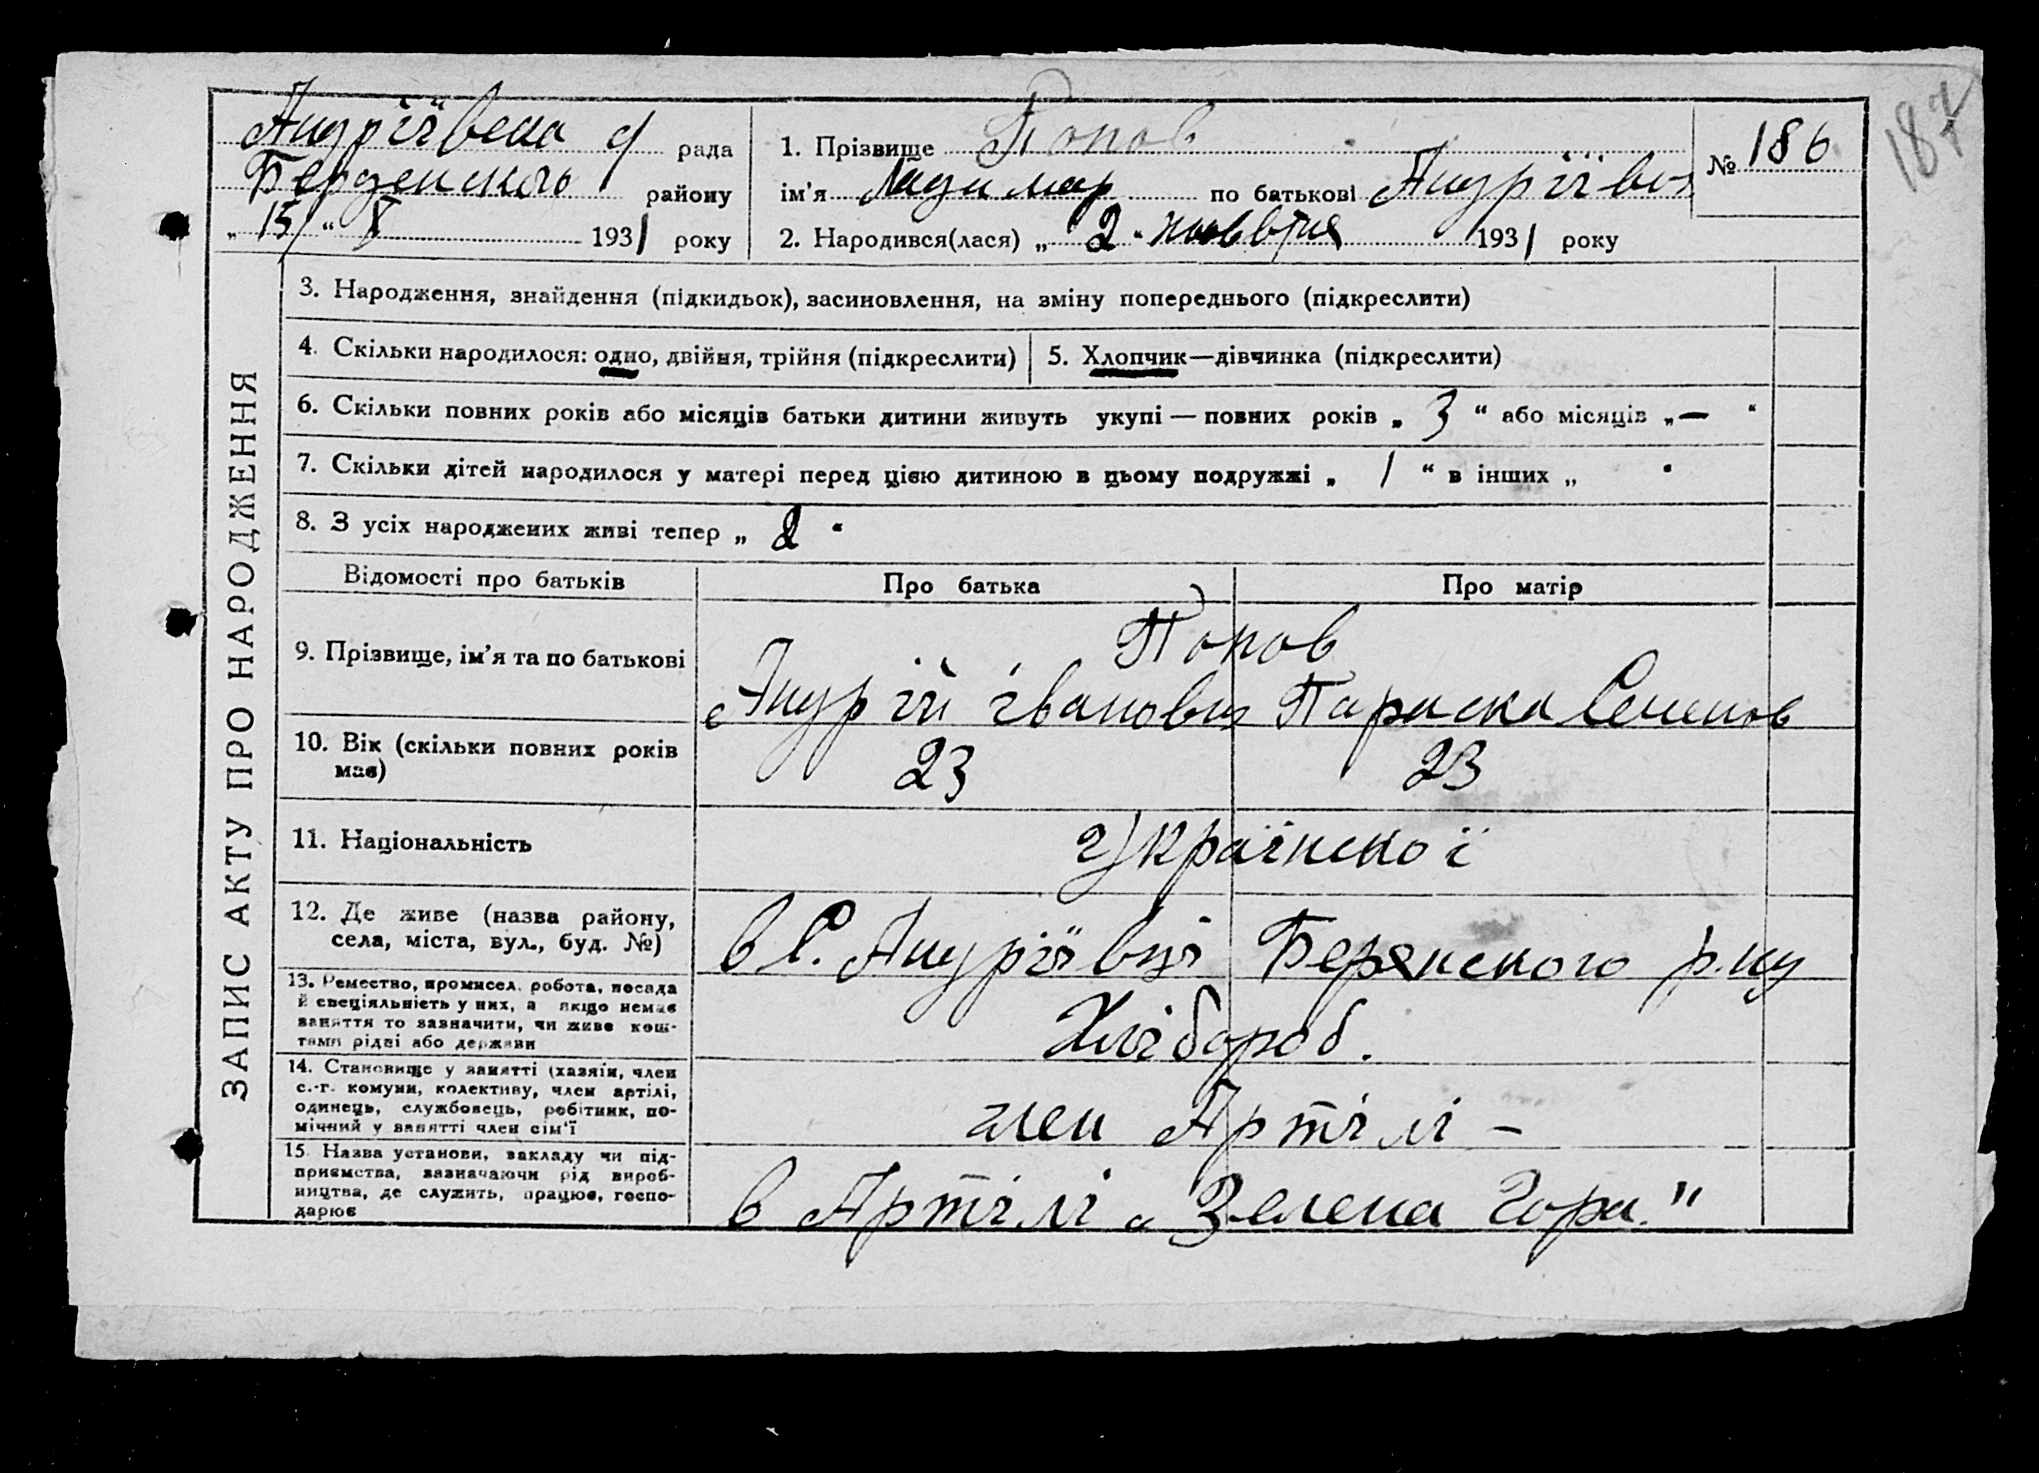 187
Андріївска с/ рада
Берденского району
„ 15 “ X 1931 року
1. Прізвище Попов
ім’я Ладимир по батькові Андріїво
2. Народився(лася) „ 2 “ ноября 1931 року
№ 186
ЗАПИС АКТУ ПРО НАРОДЖЕННЯ
3. Народження, знайдення (підкидьок), засиновлення, на зміну попереднього (підкреслити)
4. Скільки народилося: одно, двійня, трійня (підкреслити)
5. Хлопчик—дівчинка (підкреслити)
6. Скільки повних років або місяців батьки дитини живуть укупі — повних років „ 3 “ або місяців „ — “
7. Скільки дітей народилося у матері перед цією дитиною в цьому подружжі „ 1 “ в інших „ “
8. З усіх народжених живі тепер „ 2 “
Відомості про батьків
Про батька
Про матір
9. Прізвище, ім’я та по батькові
Попов
Андрій іванович Параска Семенов
10. Вік (скільки повних років
має)
23
23
11. Національність
Українскої
12. Де живе (назва району,
села, міста, вул., буд. №)
в С. Андріївці Берянского р.ну
13. Ремество, промисел, робота, посада
й спеціяльність у них, а якщо немає
заняття то зазначити, чи живе кош-
тами рідні або держави
Хлібороб.
14. Становище у занятті (хазяїн, член
с.-г. комуни, колективу, член артілі,
одинець, службовець, робітник, по-
мічний у занятті член сім’ї
член Артілі —
15. Назва установи, закладу чи під-
приємства, зазначаючи рід вироб-
ництва, де служить, працює, госпо-
дарює
в Артілі „Зелена Гора.”